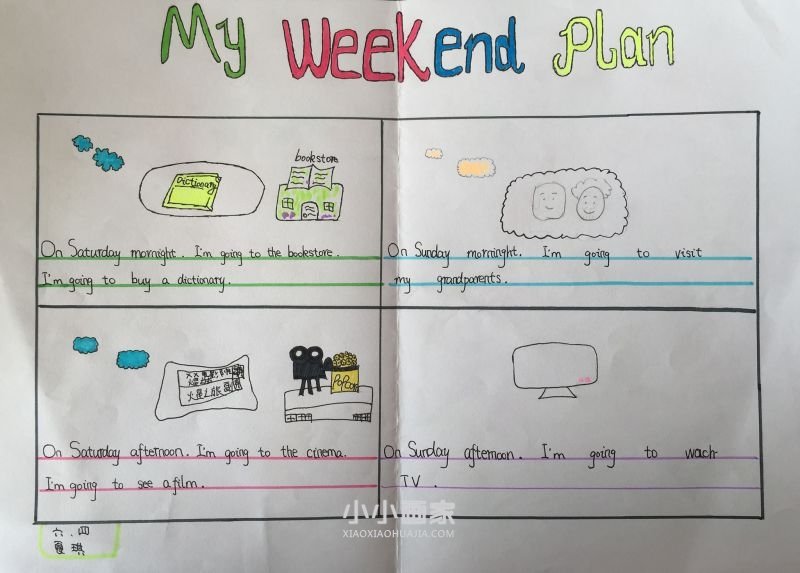 My Weekend Plan
Dictionary
bookstore
On Saturday mornight. I'm going to the bookstore.
I'm going to buy a dictionary.
On Sunday morninght. I'm going to visit
my grandparents.
火星之旅
POPCORN
On Saturday afternoon. I'm going to the cinema.
I'm going to see a film.
On Sunday afternoon. I'm going to wach
TV.
六.四
夏琪
小小画家
XIAOXIAOHUAJIA.COM